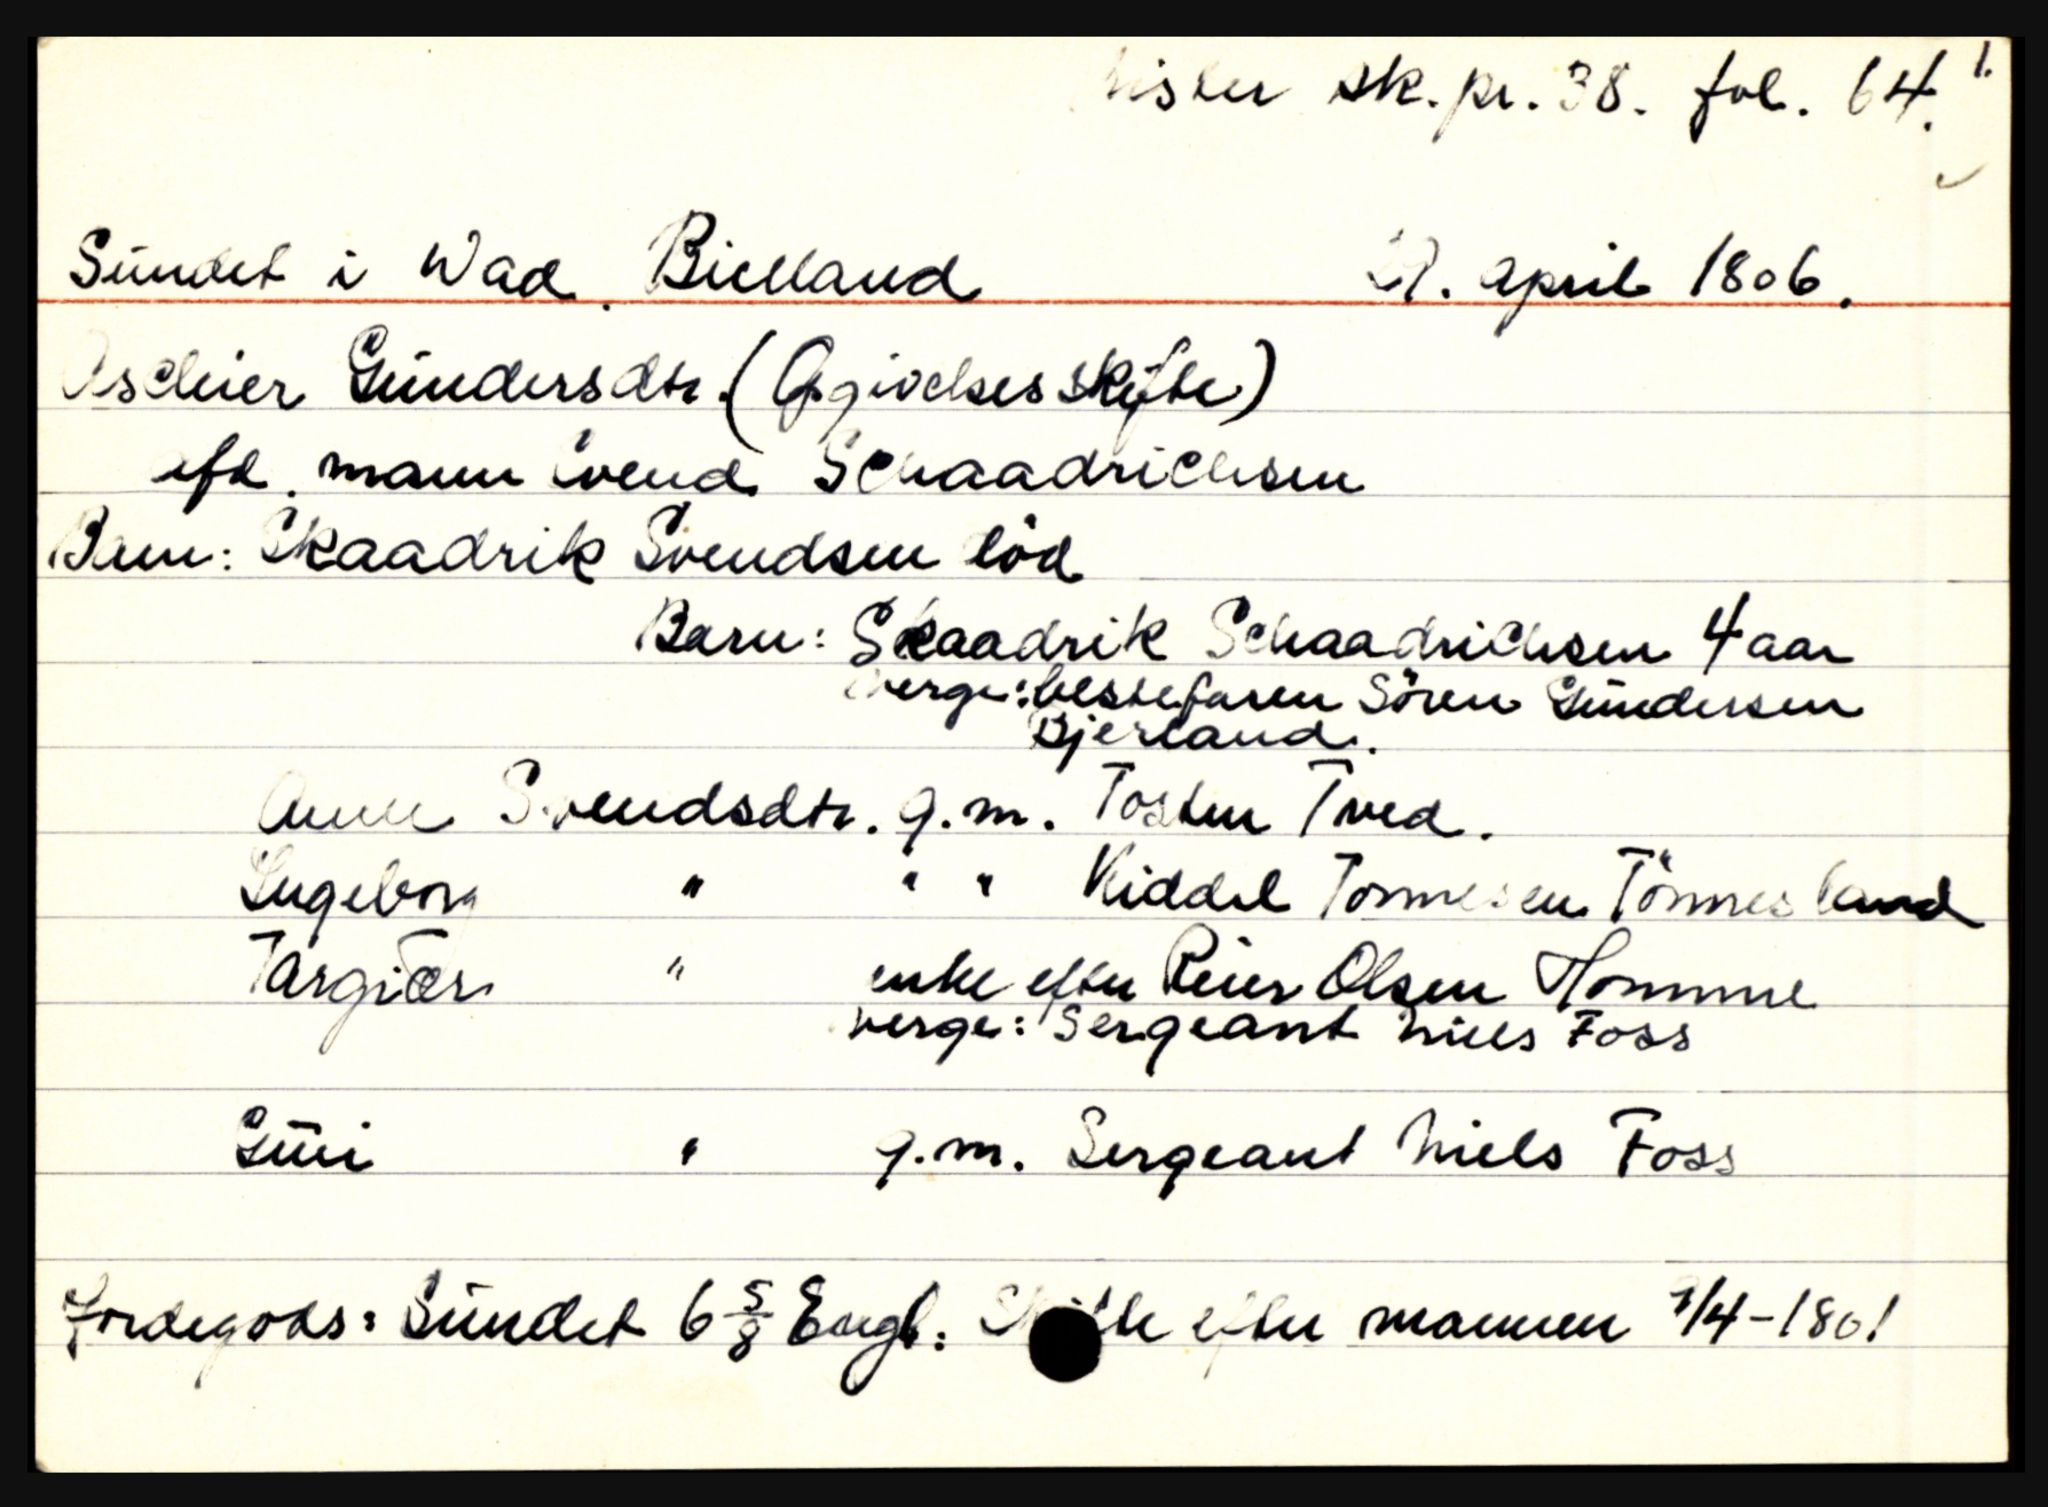 Lister sk.pr. 38. fol. 64. 1.
Sündet i Wad. Bielland 29. april 1806.
Ascheier Gündersdtr. (Opgivelses skifte)
afd. mann Svend Schaadrichsen
Barn: Skaadrik Svendsen död
Barn: Skaadrik Schaadrichsen 4 aar
verge: bestefaren Sören Gündersen
Bjerland.
Anne Svendsdtr. g.m. Tosten Tved.
Ingeborg " " " Kiddel Tønnesen Tönnesland
Targiær " enke efter Reier Olsen Homme
verge: Sergeant Niels Foss
Güri " g.m. Sergeant Niels Foss
Jordegods: Sündet 6 5/8 Engl: Skifte efter mannen 7/4-1801